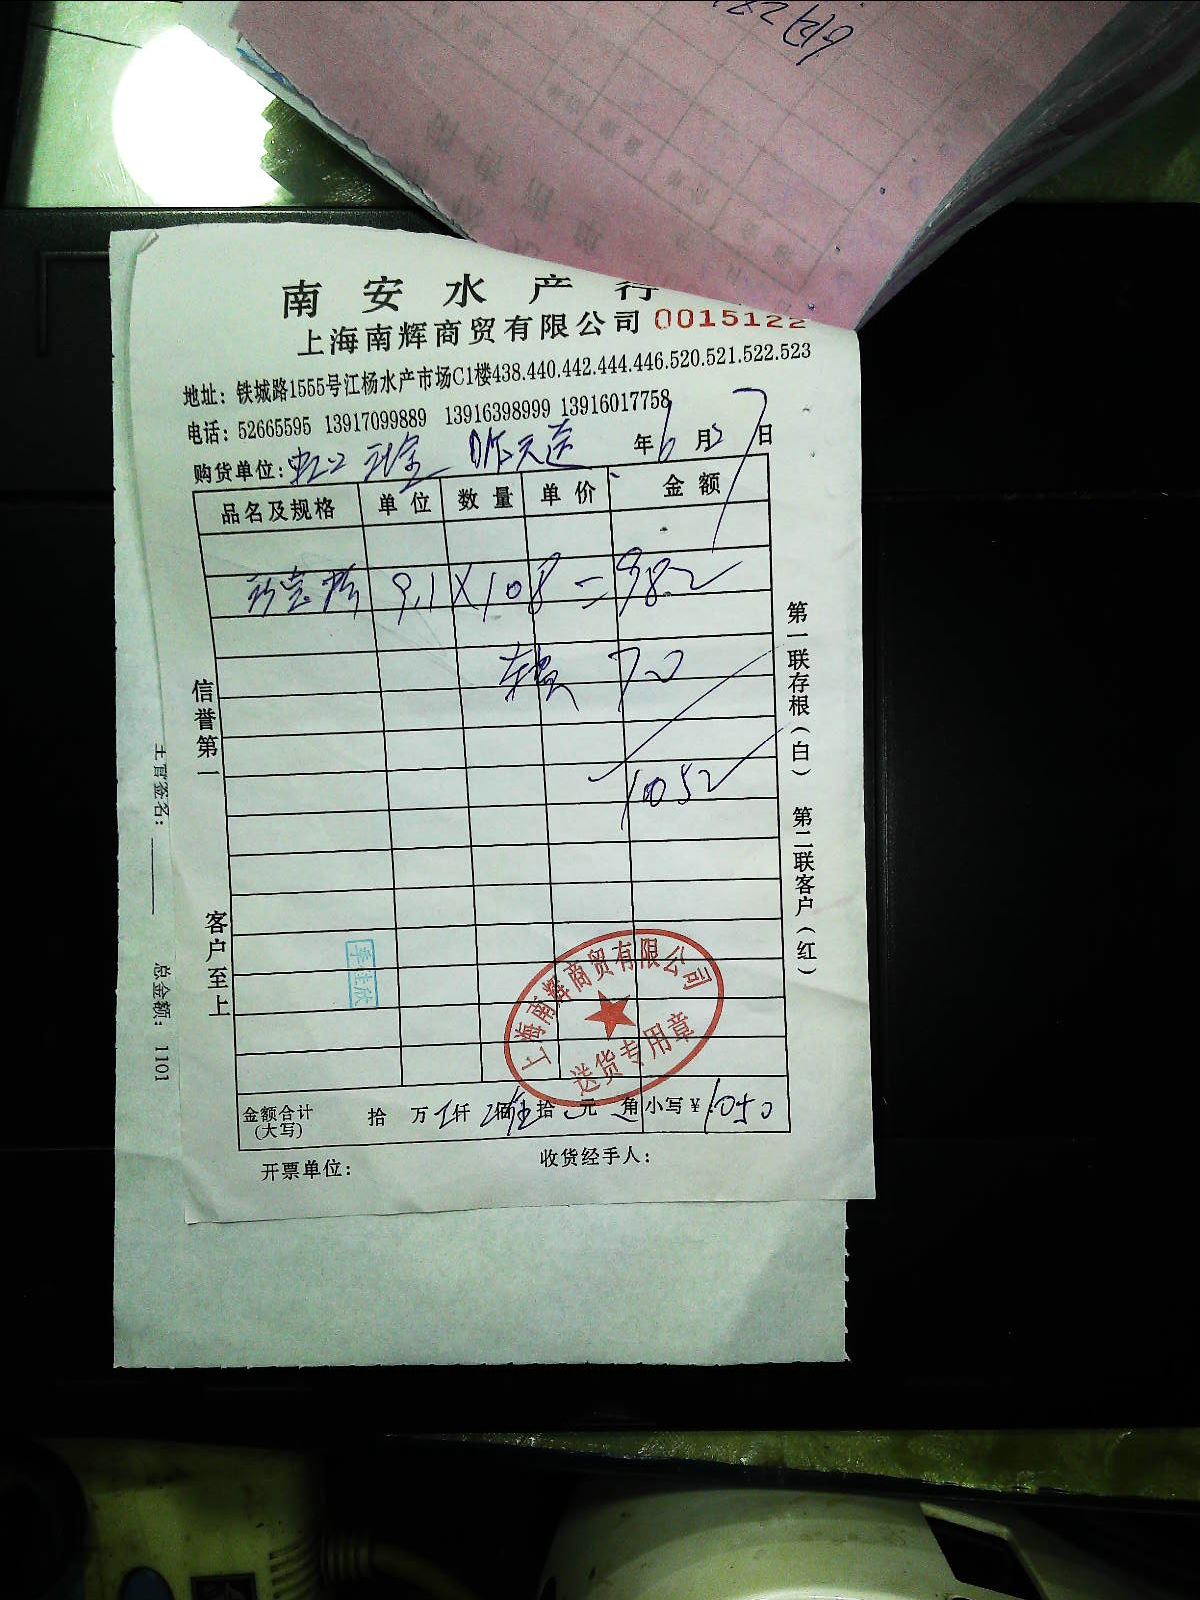 南安水产行
上海南辉商贸有限公司 0015122
地址：铁城路1555号江杨水产市场C1楼438.440.442.444.446.520.521.522.523
电话：52665595 13917099889 13916398999 13916017758
购货单位：虹口 昨天送 年6月2日
品名及规格 单位 数量 单价 金额
9.1×108=982
70
1052
信誉第一
客户至上
第一联存根（白） 第二联客户（红）
上海南辉商贸有限公司
送货专用章
金额合计（大写） 拾 万 仟 佰 拾 元 角 小写￥：1050
开票单位： 收货经手人：
主管签名： 总金额：1101